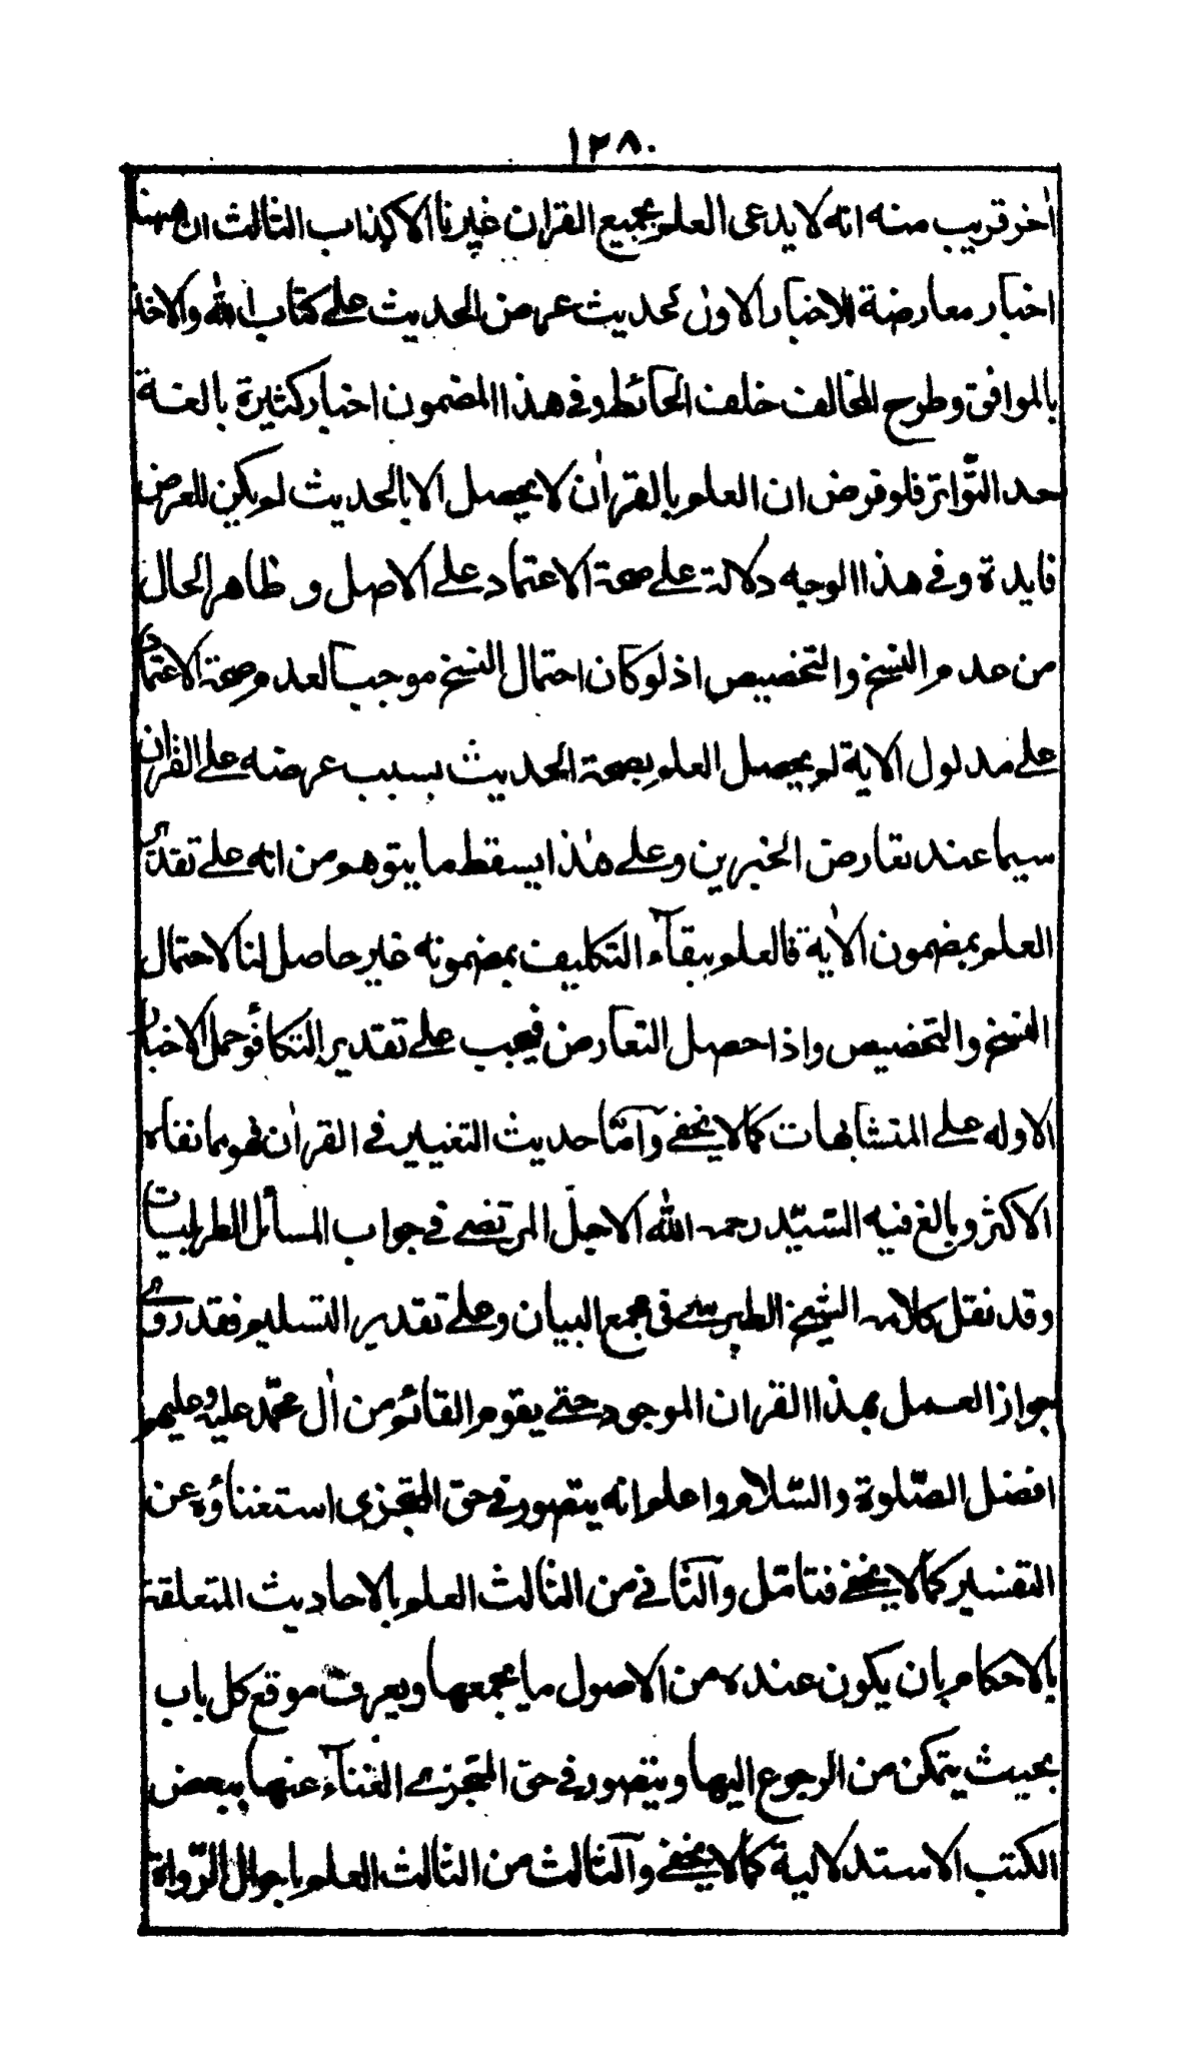 ١٢٨٠
اٰخر قريب منه انه لا يدعى العلم بجميع القران غيرنا الا كذاب الثالث ان ههنا
اخبار معارضة للاخبار الاول كحديث عرض الحديث على كتاب الله والاخذ
بالموافق وطرح المخالف خلف الحائط وفي هذا المضمون اخبار كثيرة بالغة
حد التّواتر فلو فرض ان العلم بالقراٰن لا يحصل الا بالحديث لم يكن للعرض
فايدة وفي هذا الوجه دلالة على صحة الاعتماد على الاصل و ظاهر الحال
من عدم النسخ والتخصيص اذ لو كان احتمال النسخ موجبا لعدم صحة الاعتماد
على مدلول الاية لم يحصل العلم بصحة الحديث بسبب عرضه على القران
سيما عند تعارض الخبرين وعلى هٰذا يسقط ما يتوهم من انه على تقدير
العلم بمضمون الاٰية فالعلم ببقآء التكليف بمضمونه غير حاصل لنا لاحتمال
النسخ والتخصيص واذا حصل التعارض فيجب على تقدير التكافؤ حمل الاخبار
الاوله على المتشابهات كما لا يخفى وآمّا حديث التغيير في القراٰن فهو مما نفاه
الاكثر وبالغ فيه السّيّد رحمه الله الاجلّ المرتضى في جواب المسائل الطرابلسيات
وقد نقل كلامه الشيخ الطبرسي في مجمع البيان وعلى تقدير التسليم فقد روى
جواز العمل بهذا القران الموجود حتى يقوم القائم من اٰل محمّد عليه وعليهم
افضل الصّلوة والسّلام واعلم انه يتصور في حق المتجزى استغناؤه عن
التفسير كما لا يخفى فتامّل وآلثاني من الثالث العلم بالاحاديث المتعلقة
بالاحكام بان يكون عنده من الاصول ما يجمعها ويعرف موقع كل باب
بحيث يتمكن من الرجوع اليها ويتصور في حق المتجزى الغنآء عنها ببعض
الكتب الاستدلالية كما لا يخفى وآلثالث من الثالث العلم باحوال الرّواة